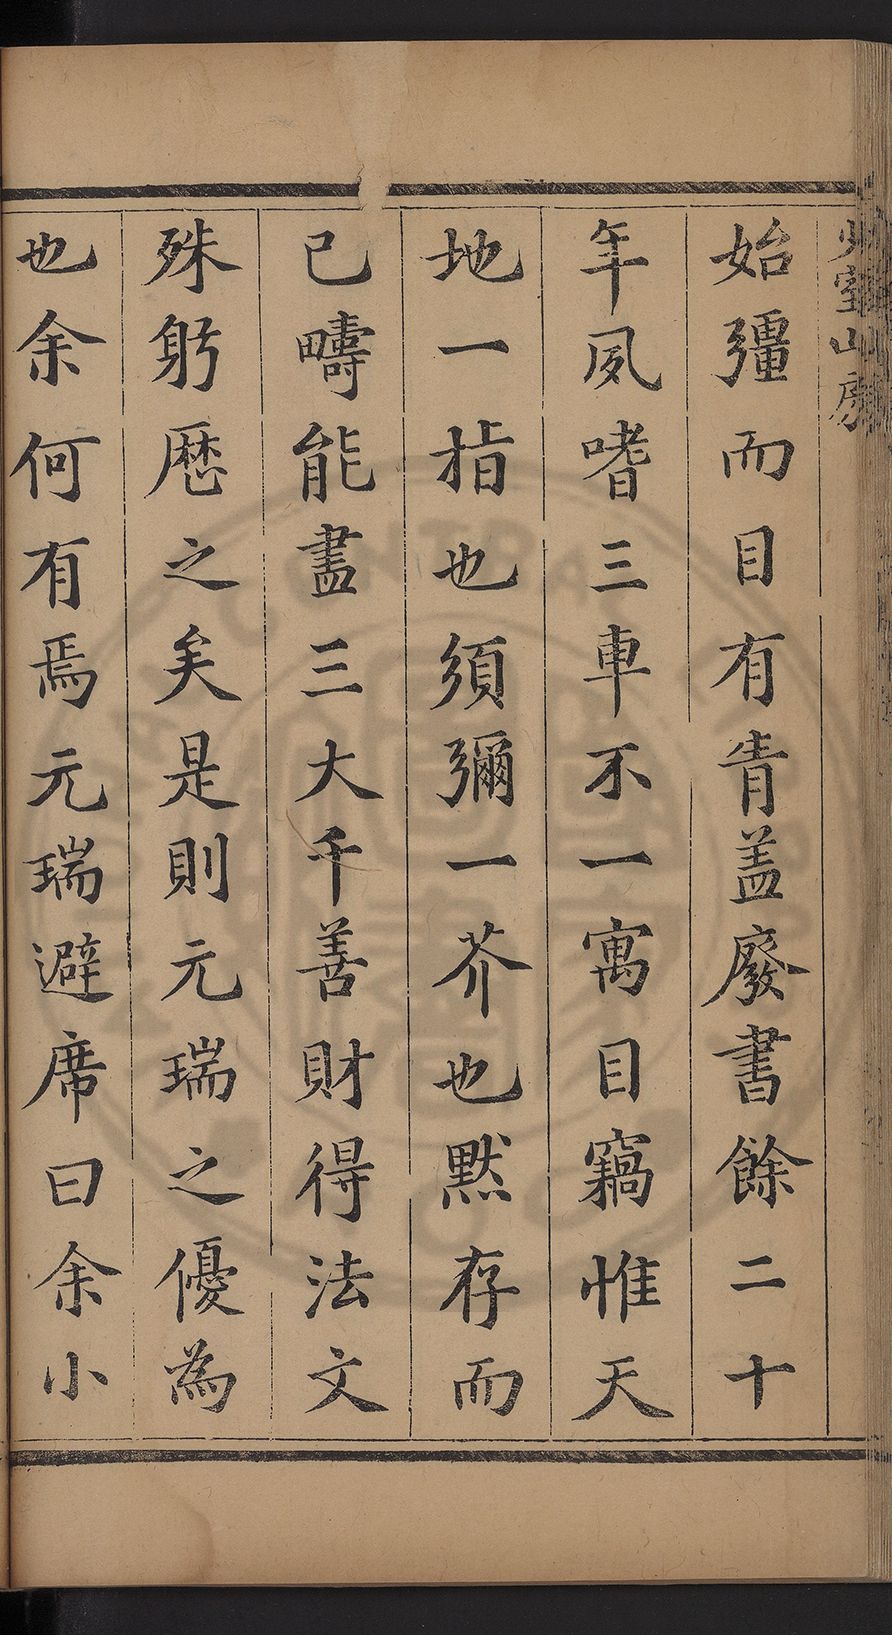 少室山房
始彊而目有眚盖廢書餘二十
年夙嗜三車不一寓目竊惟天
地一指也須彌一芥也默存而
已疇能盡三大千善財得法文
殊躬厯之矣是則元瑞之優為
也余何有焉元瑞避席曰余小